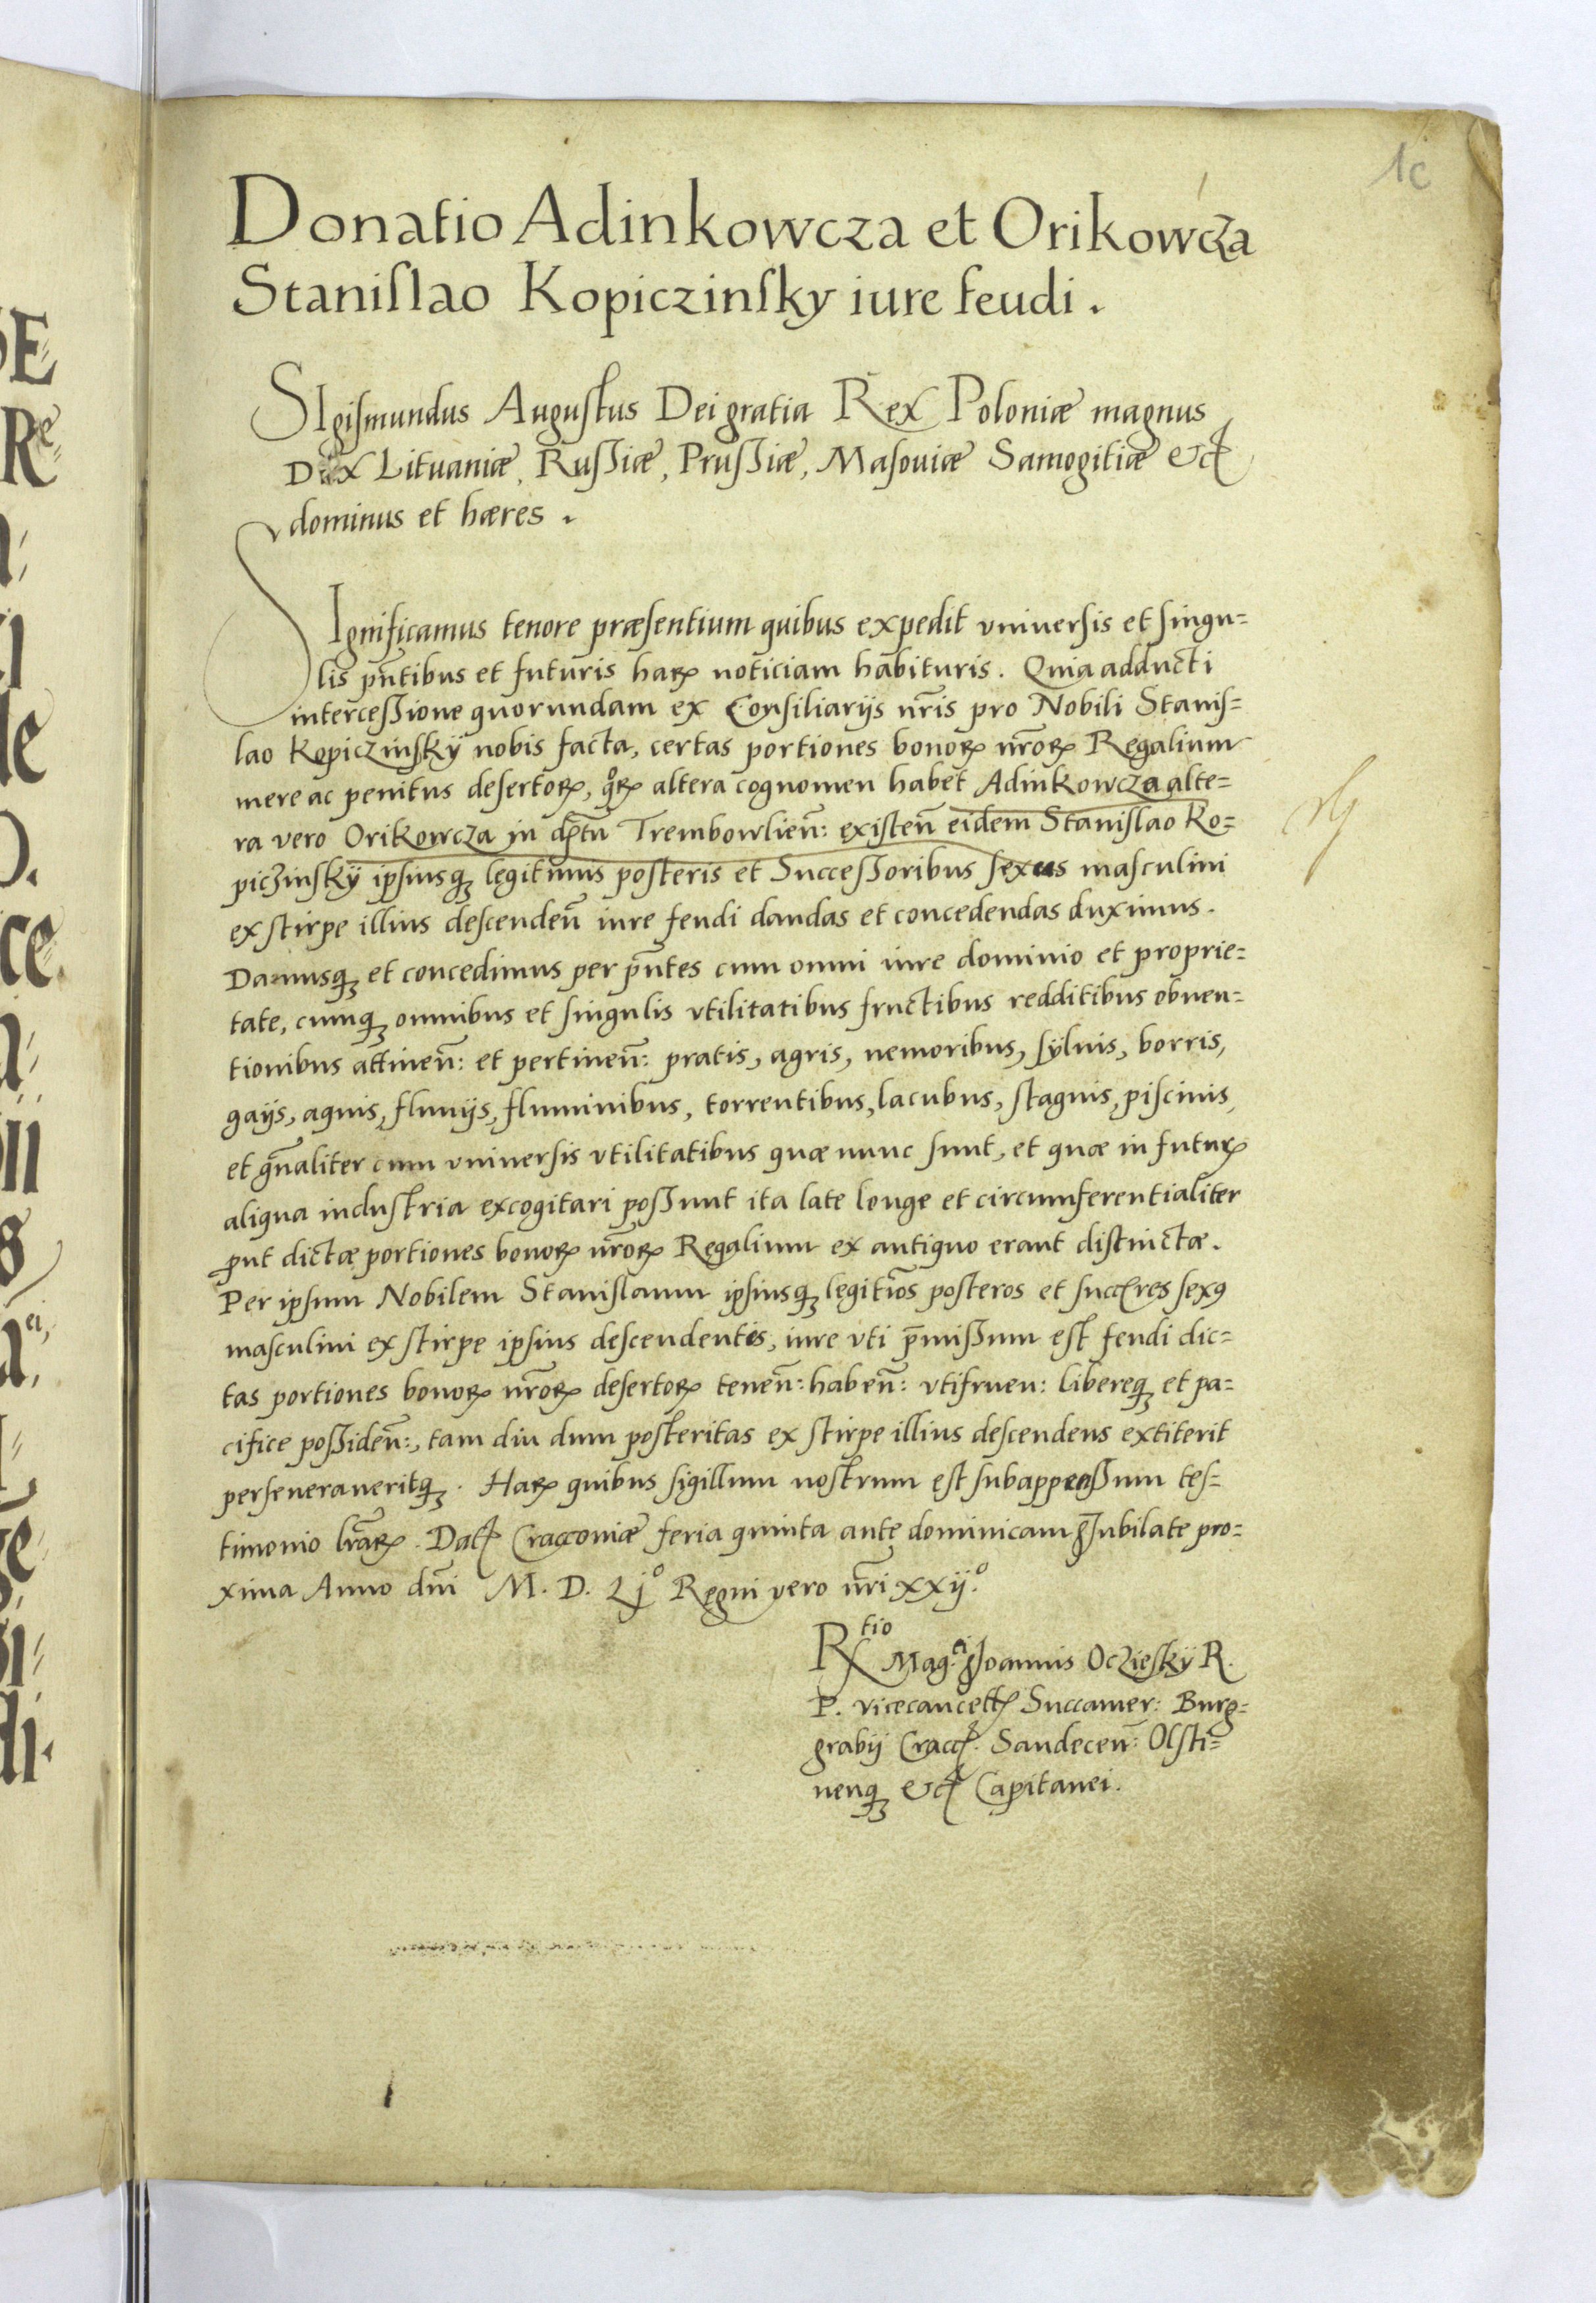 1c
Donatio Adinkowcza et Orikowcza
Staniſlao Kopiczinſky iure feudi.
SIgiſmundus Auguſtus Dei gratia Rex Poloniæ magnus
Dux Lituaniæ, Ruſſiæ, Pruſſiæ, Maſouiæ Samogitiæ &c
dominus et hæres.
SIgnificamus tenore præſentium quibus expedit vniuerſis et ſingu=
lis pn̄tibus et futuris haꝝ noticiam habituris. Quia adducti
interceſſione quorundam ex Conſiliarijs nr̄is pro Nobili Staniſ=
lao Kopiczinſkÿ nobis facta, certas portiones bonoꝝ nr̄oꝝ Regalium
mere ac penitus deſertoꝝ, qͦꝝ altera cognomen habet Adinkowcza alte=
ra vero Orikowcza in diſtru Trembowlien̄: exiſten̄ eidem Staniſlao Ko=
piczinſkÿ ipſiusqꝫ legitimis poſteris et Succeſſoribus ſexus maſculini
ex ſtirpe illius deſcenden̄ iure feudi dandas et concedendas duximus.
Damusqꝫ et concedimus per pn̄tes cum omni iure dominio et proprie=
tate, cumqꝫ omnibus et ſingulis vtilitatibus fructibus redditibus obuen=
tionibus attinen̄: et pertinen̄: pratis, agris, nemoribus, ſÿluis, borris,
gaijs, aquis, fluuijs, fluminibus, torrentibus, lacubus, ſtagnis, piſcinis,
et gn̄aliter cum vniuerſis vtilitatibus quæ nunc ſunt, et quæ in futuꝝ
aliqua induſtria excogitari poſſunt ita late longe et circumferentialiter
ꝓut dictæ portiones bonoꝝ nr̄oꝝ Regalium ex antiquo erant diſtinctæ.
Per ipſum Nobilem Staniſlaum ipſiusqꝫ legitīos poſteros et ſucc̄res ſexꝰ
maſculini ex ſtirpe ipſius deſcendentes, iure vti p̄miſſum eſt feudi dic=
tas portiones bonoꝝ nr̄oꝝ deſertoꝝ tenen̄: haben̄: vtifruen: libereqꝫ et pa=
cifice poſſiden̄:, tam diu dum poſteritas ex ſtirpe illius deſcendens extiterit
perſeueraueritqꝫ. Haꝝ quibus ſigillum noſtrum eſt ſubappenſſum teſ=
timonio lr̄aꝝ. Datꝭ Craconiæ feria quinta ante dominicam Jubilate pro=
xima Anno dn̄i M. D. Ljͦ Regni vero nr̄i xxijͦ.
Rtio Mag.ci Joannis Oczieſkÿ R.
P. vicecancellꝭ Succamer: Burg=
grabij Cracꝭ. Sandecen̄: Olſti=
nenqꝫ &c Capitanei.